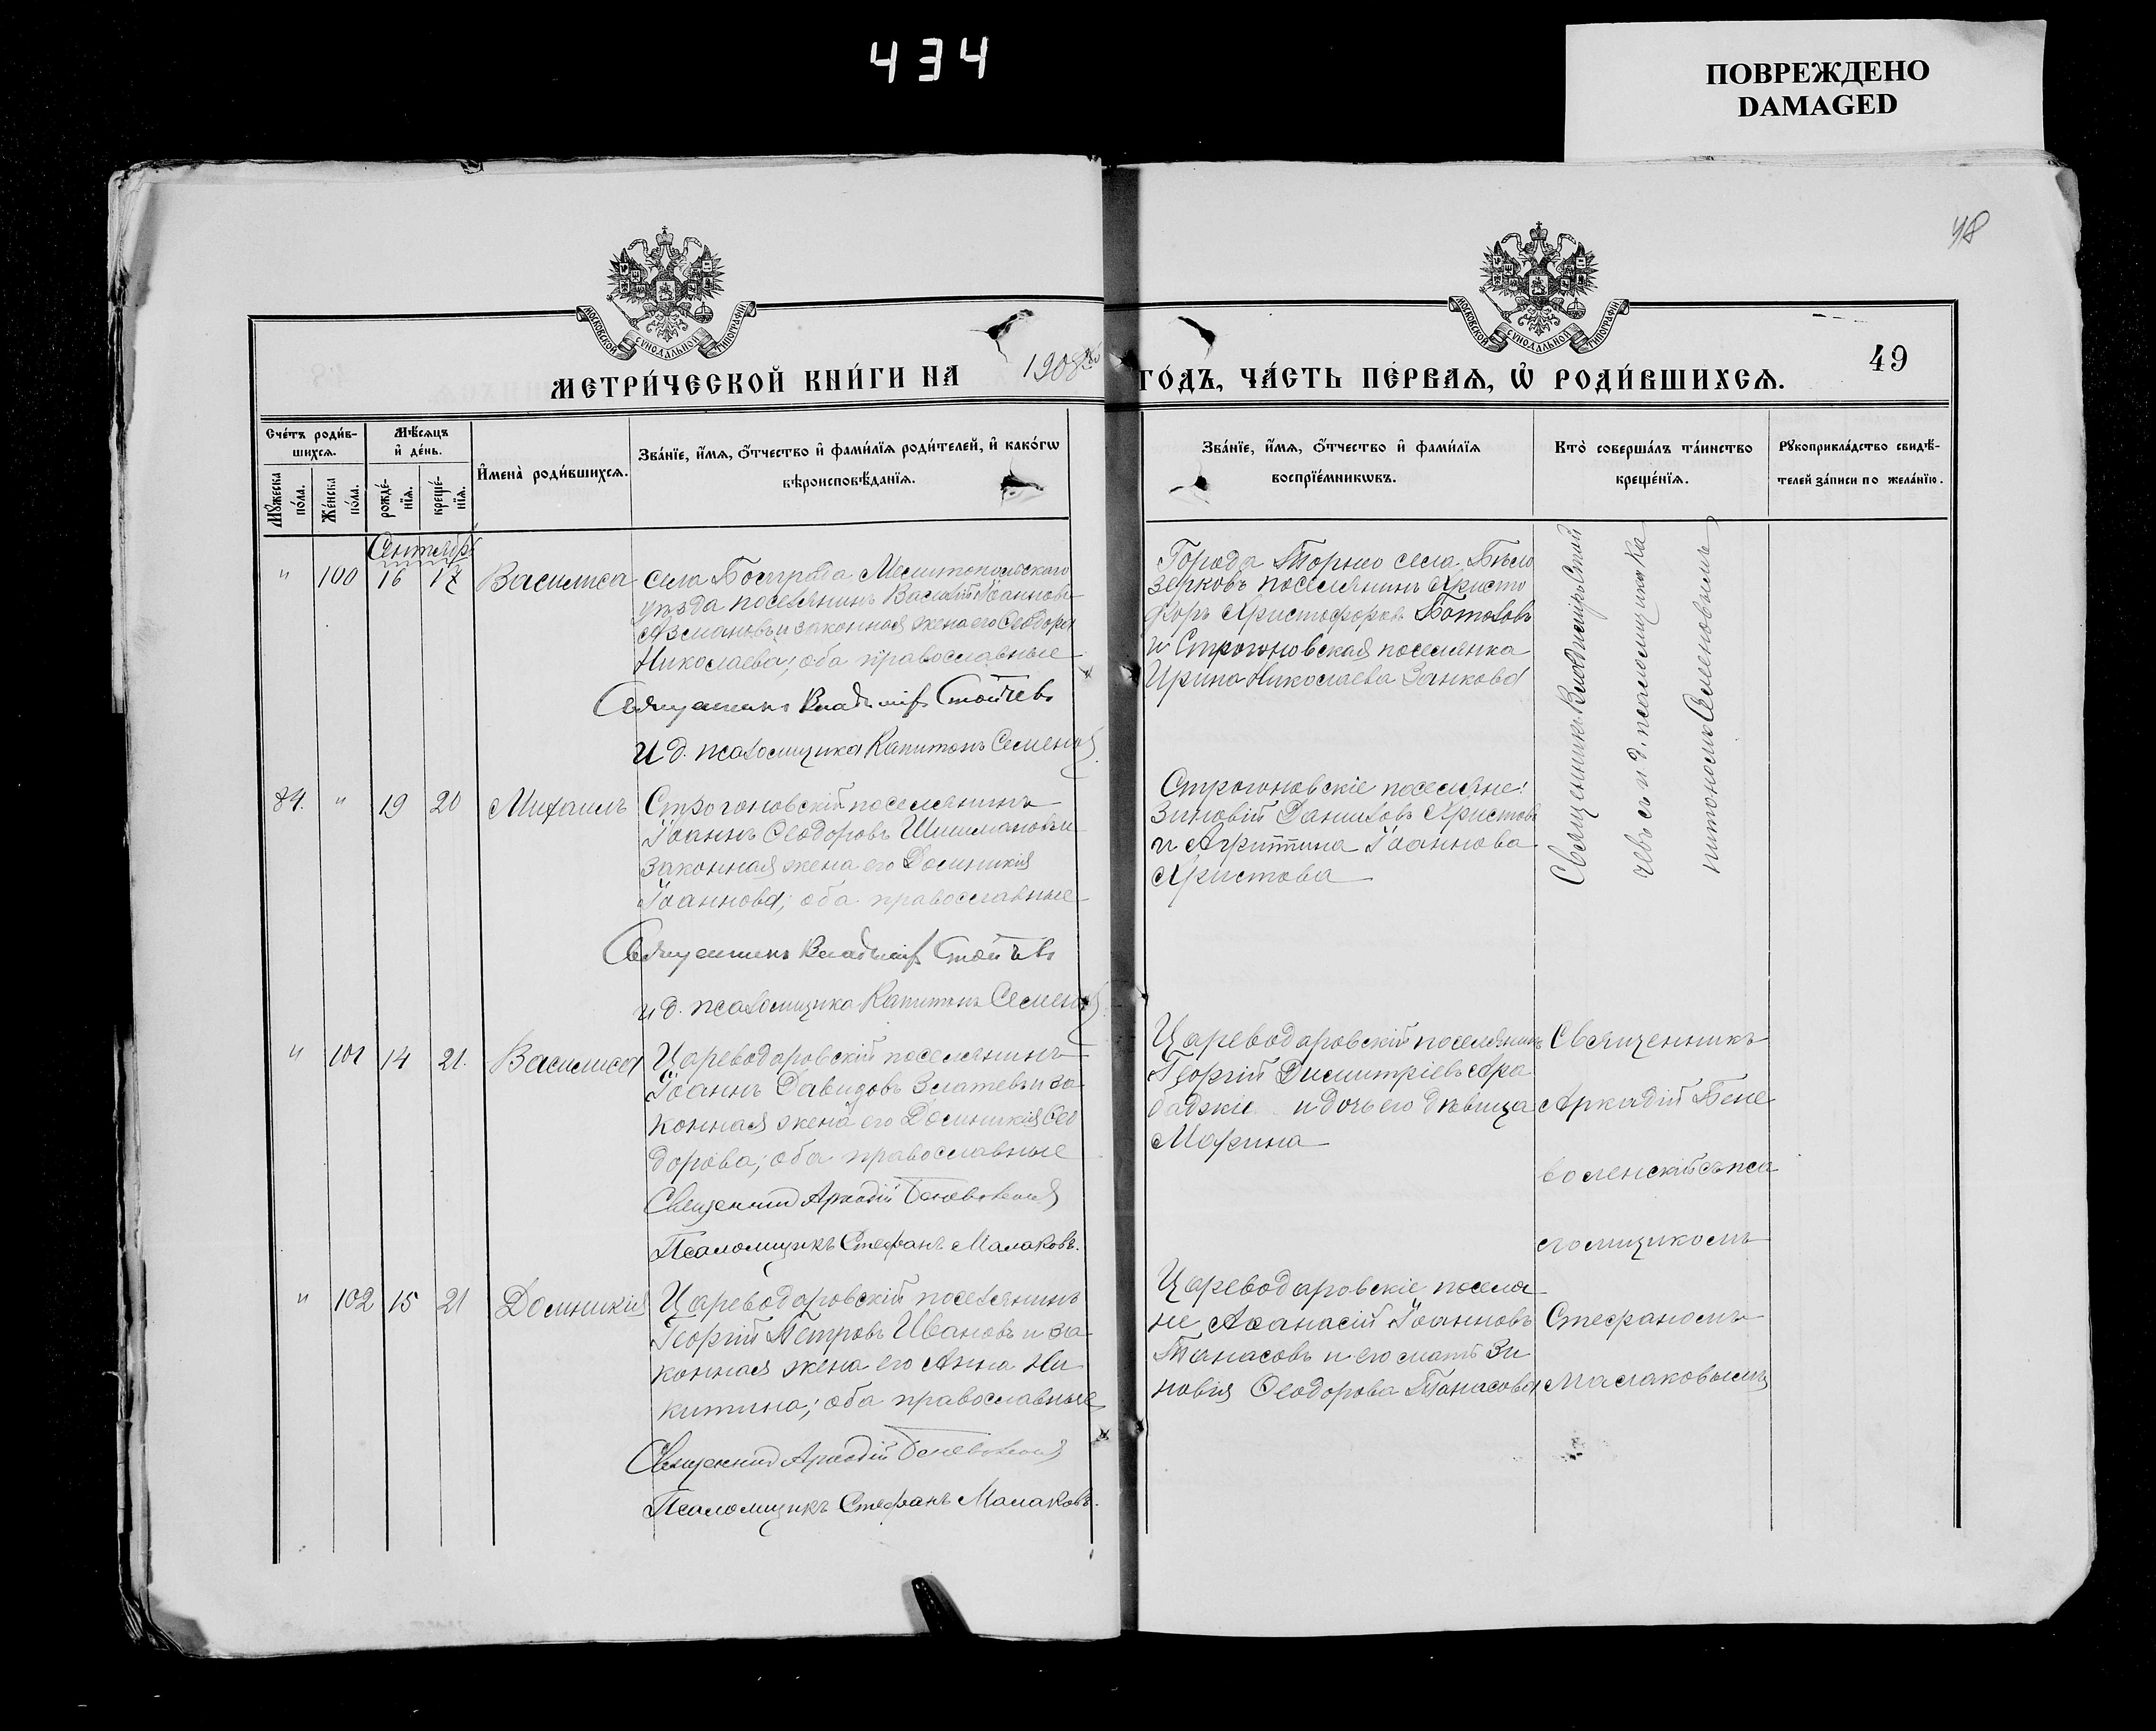 434
ПОВРЕЖДЕНО
DAMAGED
48
МОСКОВСКОЙ СѴНОДАЛЬНОЙ ТИПОГРАФІИ
МОСКОВСКОЙ СѴНОДАЛЬНОЙ ТИПОГРАФІИ
МЕТРИ́ЧЕСКОЙ КНИ́ГИ НА 1908 ГО́ДЪ, ЧА́СТЬ ПЕ́РВАѦ, Ѡ РОДИ́ВШИХСѦ.
49
Сче́тъ роди́в-
шихсѧ.
Мѣ́сѧцъ
и҆ де́нь.
Мꙋ́жеска по́ла.
Же́нска по́ла.
рожде́-
нїѧ.
креще́-
нїѧ.
И҆мена̀ роди́вшихсѧ.
Зва́нїе, и҆́мѧ, ѻ҆́тчество и҆ фамі́лїѧ роди́телей, и҆ како́гѡ
вѣроисповѣ́данїѧ.
Зва́нїе, и҆́мѧ, ѻ҆́тчество и҆ фамі́лїѧ
воспрїе́мникѡвъ.
Кто̀ соверша́лъ та́инство
креще́нїѧ.
Рꙋкоприкла́дство свидѣ́-
телей за́писи по жела́нїю.
Сентябрь
" 100 16 17 Василиса
Села Мелитопольскаго
уѣзда поселянинъ Василій Іоанновъ
и законная жена его Ѳеодора
Николаева; оба православные
Священникъ Владиміръ Стойчевъ
И д. псаломщика Капитонъ Семеновъ
Города села Бѣло
зерковъ поселянинъ Христо
форъ Христофоровъ Ботовъ
и Строгоновская поселянка
Ирина Николаева Занкова
Священникъ Владиміръ Стой
чевъ съ и д. псаломщика Ка
питономъ Семеновымъ
84. " 19 20 Михаилъ
Строгоновскій поселянинъ
Іоаннъ Ѳеодоровъ Шишмановъ и
законная жена его Домникія
Іоаннова; оба православные
Священникъ Владиміръ Стойчевъ
и д. псаломщика Капитонъ Семеновъ
Строгоновскіе поселяне:
Зиновій Даниловъ Христовъ
и Агриппина Іоаннова
Христова
" 101 14 21. Василиса
Цареводаровскій поселянинъ
Іоаннъ Давидовъ Златевъ и за
конная жена его Домникія Ѳео
дорова; оба православные
Священникъ Аркадій Беневоленскій
Псаломщикъ Стефанъ Малаковъ.
Цареводаровскій поселянинъ
Георгій Димитріевъ Ара
баджи и дочь его дѣвица
Марина
Священникъ
Аркадій Бене
воленскій съ пса
ломщикомъ
Стефаномъ
Малаковымъ
" 102 15 21 Домникія
Цареводаровскій поселянинъ
Георгій Петровъ Ивановъ и за
конная жена его Анна Ни
китина; оба православные
Священникъ Аркадій Беневоленскій
Псаломщикъ Стефанъ Малаковъ.
Цареводаровскіе поселя
не Аѳанасій Іоанновъ
Танасовъ и его мать Зи
новія Ѳеодорова Танасова